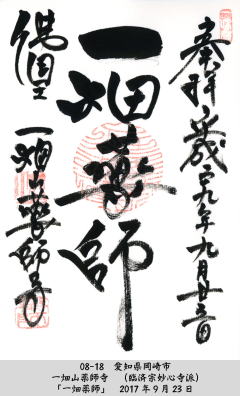 奉拝 平成二十九年九月廿三日
一畑薬師
一畑山薬師寺
08-18 愛知県岡崎市
一畑山薬師寺 (臨済宗妙心寺派)
「一畑薬師」 2017年9月23日